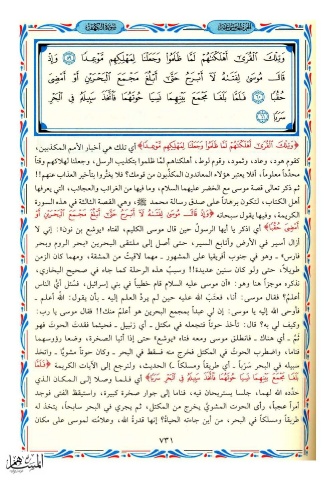 الجزء الخامس عشر
سورة الكهف
وَتِلْكَ الْقُرَىٰ أَهْلَكْنَاهُمْ لَمَّا ظَلَمُوا وَجَعَلْنَا لِمَهْلِكِهِم مَّوْعِدًا ۝٥٩ وَإِذْ
قَالَ مُوسَىٰ لِفَتَاهُ لَا أَبْرَحُ حَتَّىٰ أَبْلُغَ مَجْمَعَ الْبَحْرَيْنِ أَوْ أَمْضِيَ
حُقُبًا ۝٦٠ فَلَمَّا بَلَغَا مَجْمَعَ بَيْنِهِمَا نَسِيَا حُوتَهُمَا فَاتَّخَذَ سَبِيلَهُ فِي الْبَحْرِ
سَرَبًا ۝٦١
﴿وَتِلْكَ الْقُرَىٰ أَهْلَكْنَاهُمْ لَمَّا ظَلَمُوا وَجَعَلْنَا لِمَهْلِكِهِم مَّوْعِدًا﴾ أي تلك هي أخبار الأمم المكذبين،
كقوم هود، وعاد، وثمود، وقوم لوط، أهلكناهم لمَّا ظلموا بتكذيب الرسل، وجعلنا لهلاكهم وقتاً
محدَّداً معلوماً، أفلا يعتبر هؤلاء المعاندون المكذِّبون من قومك؟ فلا يغترُّوا بتأخير العذاب عنهم!!
ثم ذكر تعالى قصة موسى مع الخضر عليهما السلام، وما فيها من الغرائب والعجائب، التي يعرفها
أهل الكتاب، لتكون برهاناً على صدق رسالة محمد ﷺ، وهي القصة الثالثة في هذه السورة
الكريمة، وفيها يقول سبحانه ﴿وَإِذْ قَالَ مُوسَىٰ لِفَتَاهُ لَا أَبْرَحُ حَتَّىٰ أَبْلُغَ مَجْمَعَ الْبَحْرَيْنِ أَوْ
أَمْضِيَ حُقُبًا﴾ أي اذكر يا أيها الرسولُ حين قال موسى الكليم، لفتاه «يوشع بن نون»: إني لا
أزال أسير في الأرض وأتابع السير، حتى أصل إلى ملتقى البحرين بحر الروم وبحر
فارس ـ وهو في جنوب أفريقيا على المشهور ـ مهما لاقيتُ من المشقة، ومهما كان الزمن
طويلاً، حتى ولو كان سنين عديدة!! وسببُ هذه الرحلة كما جاء في صحيح البخاري،
نذكره موجزاً هنا وهو: «أن موسى عليه السلام قام خطيباً في بني إسرائيل، فسُئل أيُّ الناس
أعلمُ؟ فقال موسى: أنا، فعتب الله عليه حين لم يردَّ العلم إليه ـ بأن يقول: الله أعلم ـ
فأوحى الله إليه يا موسى: إن لي عبداً بمجمع البحرين هو أعلمُ منك!! فقال موسى يا رب:
وكيف لي به؟ قال: تأخذ حوتاً فتجعله في مكتل ـ أي زنبيل ـ فحيثما فقدتَ الحوت فهو
ثَمَّ ـ أي هناك ـ فانطلق موسى ومعه فتاه «يوشع» حتى إذا أتيا الصخرة، وضعا رؤوسهما
فناما، واضطرب الحوتُ في المكتل فخرج منه فسقط في البحر ـ وكان حوتاً مشوياً ـ واتخذ
سبيله في البحر سَرَباً ـ أي طريقاً ومسلكاً ـ» الحديث، ولنرجع إلى الآيات الكريمة ﴿فَلَمَّا
بَلَغَا مَجْمَعَ بَيْنِهِمَا نَسِيَا حُوتَهُمَا فَاتَّخَذَ سَبِيلَهُ فِي الْبَحْرِ سَرَبًا﴾ أي فلما وصلا إلى المكان الذي
حدَّده الله لهما، جلسا يستريحان فيه، فناما إلى جوار صخرة كبيرة، واستيقظ الفتى فوجد
أمراً عجباً، رأى الحوت المشويَّ يخرج من المكتل، ثم يجري في البحر سابحاً، يتخذ له
طريقاً ومسلكاً في البحر، من أين جاءته الحياة؟ إنها قدرةُ الله، وعلامته لموسى على مكان
٧٣١